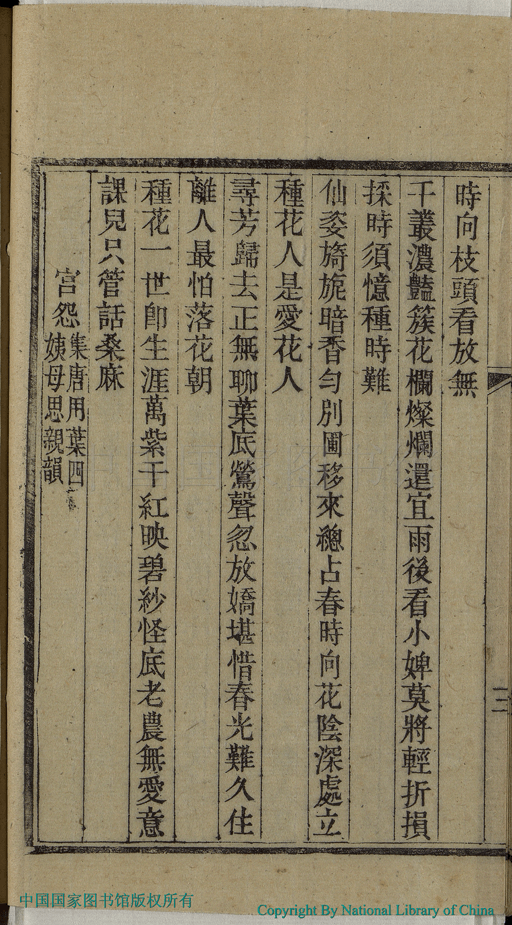 時向枝頭看放無
千叢濃豔簇花欄燦爛還宜雨後看小婢莫將輕折損
採時須憶種時難
仙姿旖旎暗香勻別圃移來總占春時向花陰深處立
種花人是愛花人
尋芳歸去正無聊葉底鶯聲忽放嬌堪惜春光難久住
離人最怕落花朝
種花一世卽生涯萬紫千紅映碧紗怪底老農無愛意
課兒只管話桑麻
宮怨集唐用葉四
姨母思親韻
三
中国国家图书馆版权所有
Copyright By National Library of China